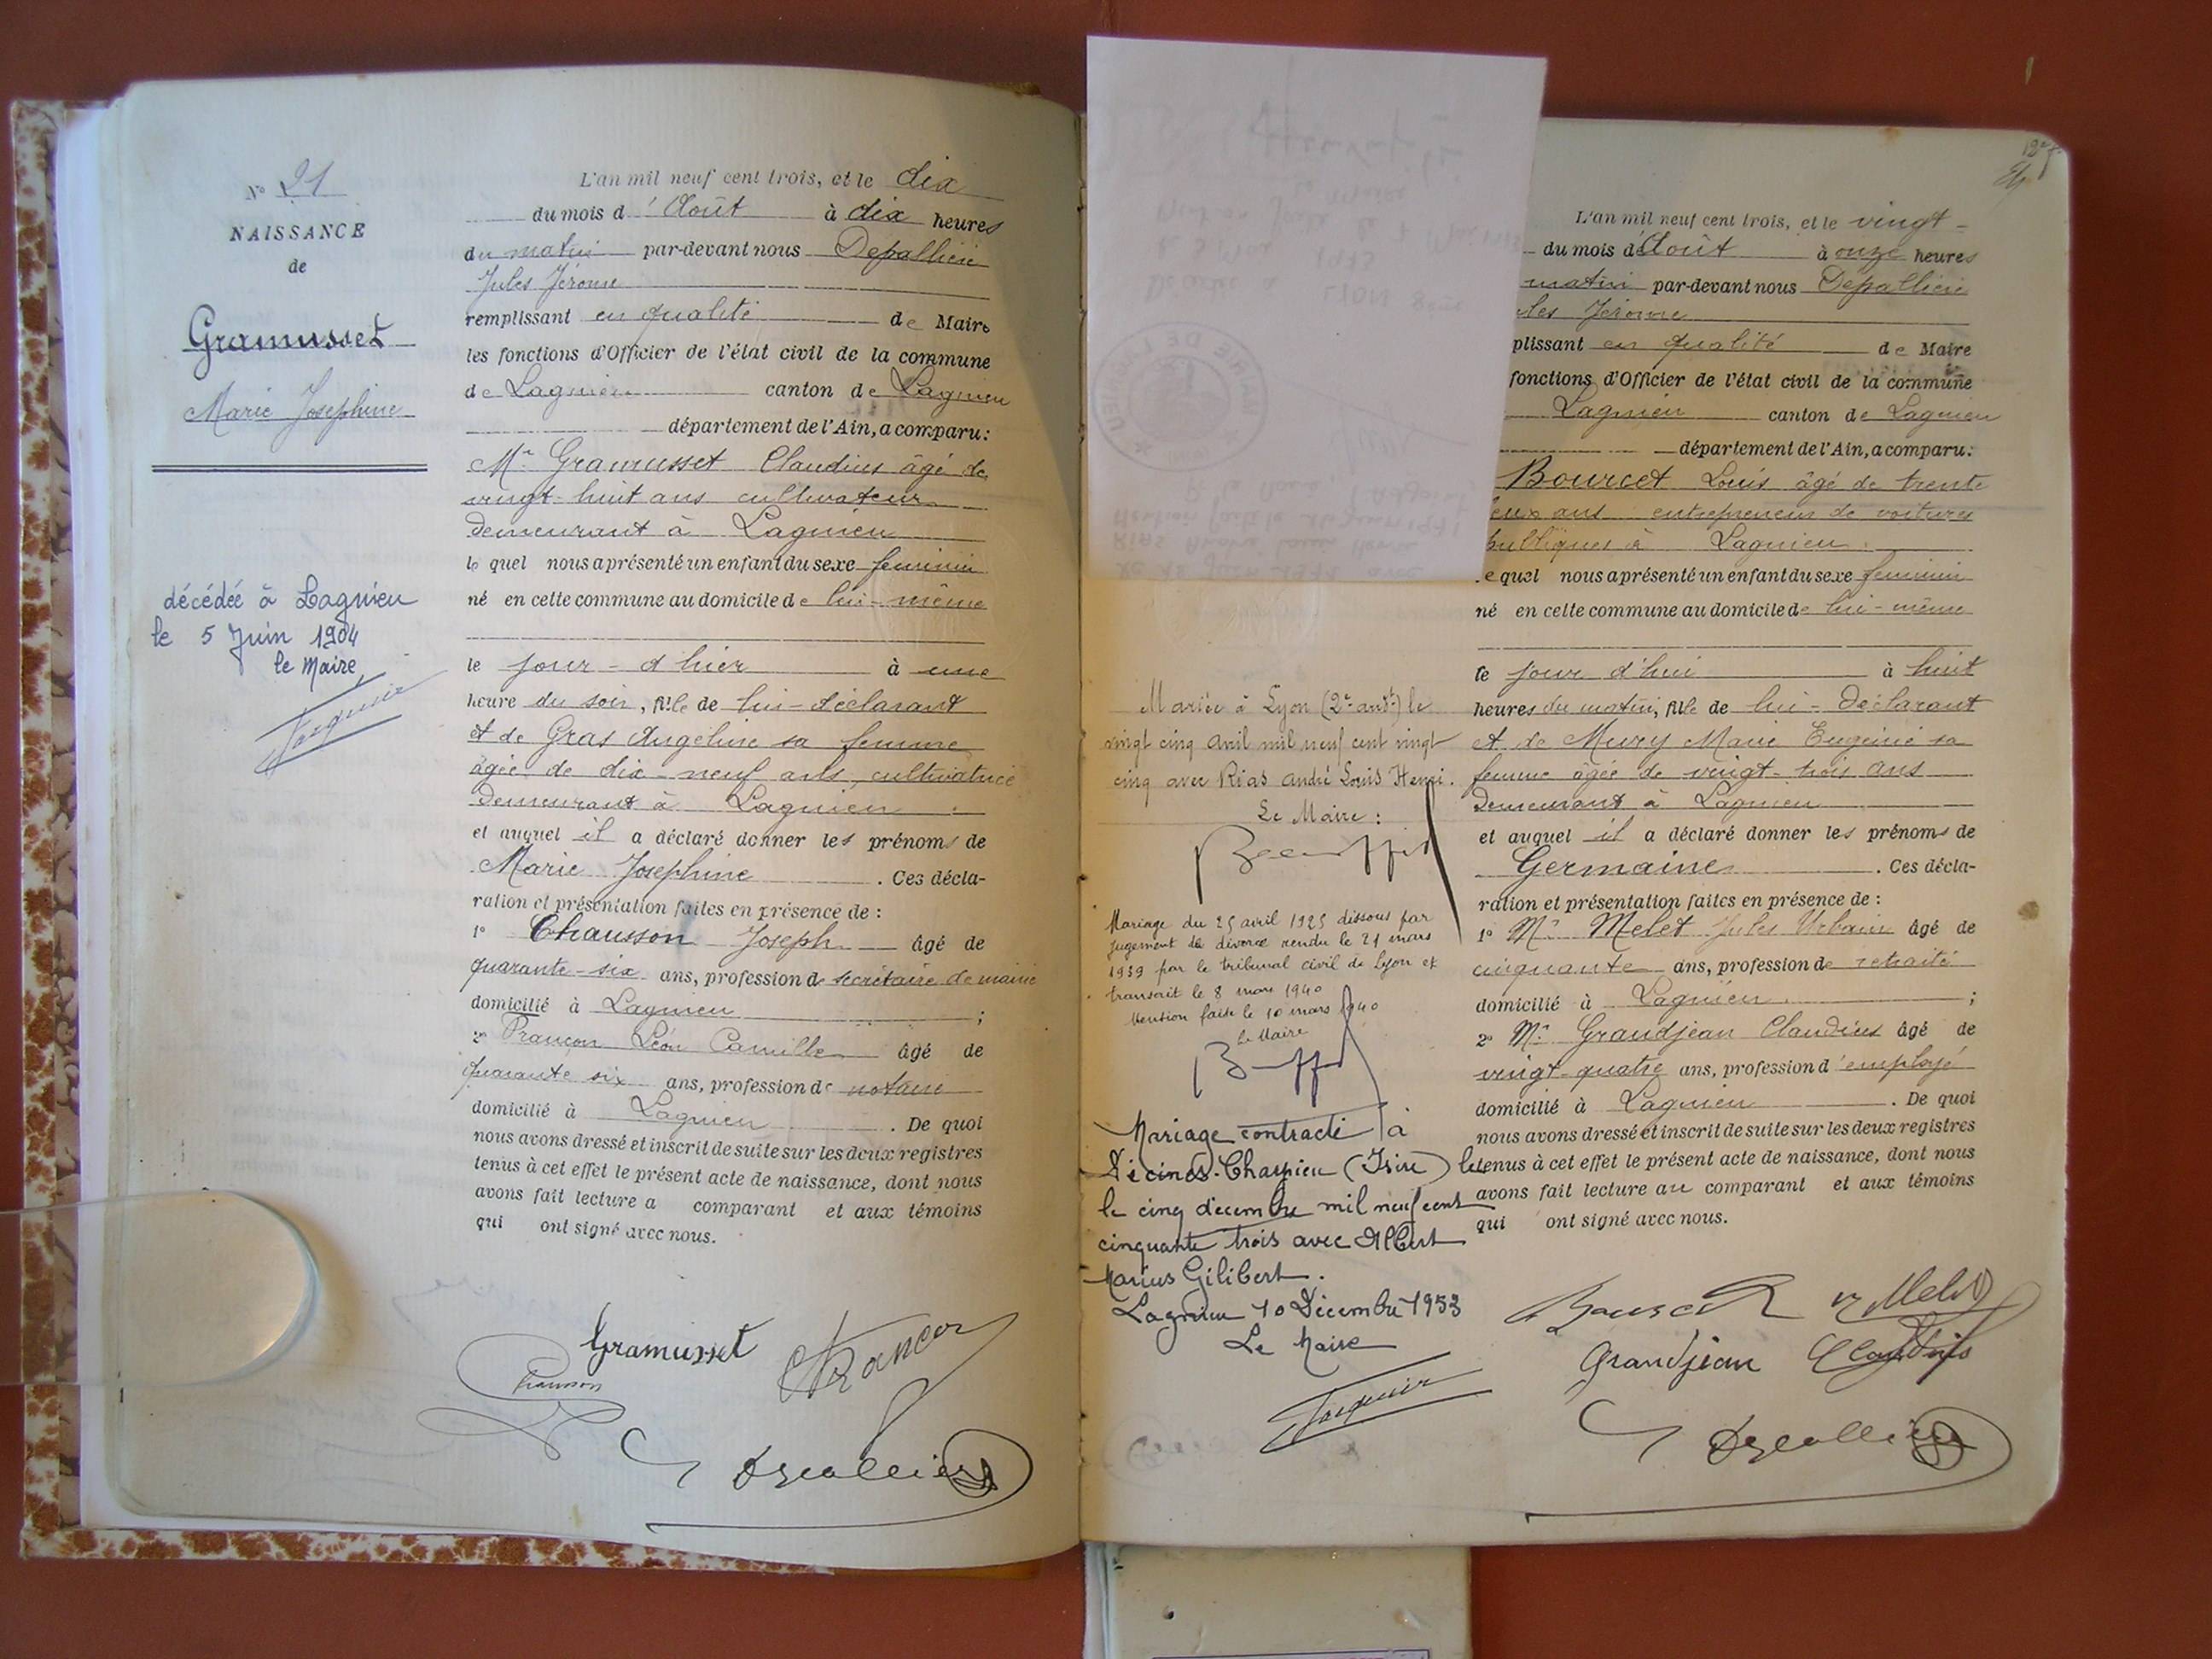 N° 21
NAISSANCE
de
Gramusset
Marie Joséphine
décédée à Lagnieu
le 5 Juin 1904
le Maire
Jacquier
L'an mil neuf cent trois, et le dix
du mois d'Août à dix heures
du matin par-devant nous Depallière
Jules Jérome
remplissant en qualité de Maire
les fonctions d'Officier de l'état civil de la commune
de Lagnieu canton de Lagnieu
département de l'Ain, a comparu:
Mr Gramusset Claudius âgé de
vingt-huit ans cultivateur
demeurant à Lagnieu
le quel nous a présenté un enfant du sexe feminin
né en cette commune au domicile de lui-même
le jour-d'hier à une
heure du soir, fille de lui-déclarant
et de Gras Angeline sa femme
âgée de dix-neuf ans, cultivatrice
demeurant à Lagnieu
et auquel il a déclaré donner les prénoms de
Marie Joséphine. Ces décla-
ration et présentation faites en présence de :
1° Chausson Joseph âgé de
quarante-six ans, profession de secrétaire de mairie
domicilié à Lagnieu ;
2° Françon Léon Camille âgé de
quarante six ans, profession de notaire
domicilié à Lagnieu. De quoi
nous avons dressé et inscrit de suite sur les deux registres
tenus à cet effet le présent acte de naissance, dont nous
avons fait lecture a comparant et aux témoins
qui ont signé avec nous.
Gramusset Françon
Chausson
Depallière
Mariée à Lyon (2e ardt) le
vingt cinq avril mil neuf cent vingt
cinq avec Rias André Louis Henri.
Le Maire :
Mariage du 25 avril 1925 dissous par
jugement de divorce rendu le 21 mars
1939 par le tribunal civil de Lyon et
transcrit le 8 mars 1940
Mention faite le 10 mars 1940
le Maire
Mariage contracté à
Décines-Charpieu (Isère) le
le cinq décembre mil neuf cent
cinquante trois avec Albert
Marius Gilibert.
Lagnieu 10 Décembre 1953
Le Maire
Jacquier
L'an mil neuf cent trois, et le vingt-
du mois d'Août à onze heures
matin par-devant nous Depallière
ules Jérome
plissant en qualité de Maire
fonctions d'Officier de l'état civil de la commune
Lagnieu canton de Lagnieu
département de l'Ain, a comparu:
Bourcet Louis âgé de trente
eux ans entrepreneur de voitures
publiques à Lagnieu
e quel nous a présenté un enfant du sexe feminin
né en cette commune au domicile de lui-même
le jour d'hui à huit
heures du matin, fille de lui-déclarant
et de Mury Marie Eugénie sa
femme âgée de vingt-trois ans
demeurant à Lagnieu
et auquel il a déclaré donner les prénoms de
Germaine. Ces décla-
ration et présentation faites en présence de :
1° Mr Melet Jules Urbain âgé de
cinquante ans, profession de retraité
domicilié à Lagnieu ;
2° Mr Grandjean Claudius âgé de
vingt-quatre ans, profession d'employé
domicilié à Lagnieu. De quoi
nous avons dressé et inscrit de suite sur les deux registres
tenus à cet effet le présent acte de naissance, dont nous
avons fait lecture au comparant et aux témoins
qui ont signé avec nous.
Bourcet Melet
Grandjean Claudius
Depallière